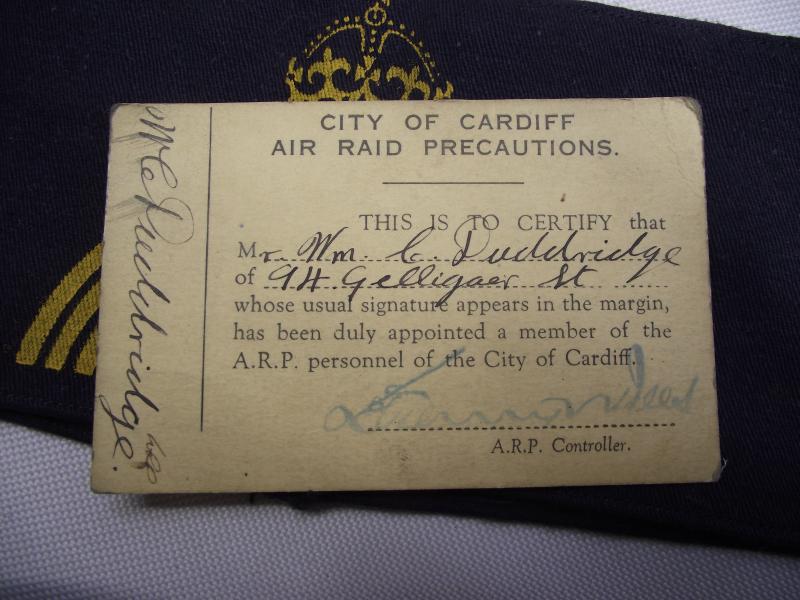 CITY OF CARDIFF
AIR RAID PRECAUTIONS.
THIS IS TO CERTIFY that
Mr. Wm. C. Duddridge
of 94. Gelligaer St
whose usual signature appears in the margin,
has been duly appointed a member of the
A.R.P. personnel of the City of Cardiff.
A.R.P. Controller.
W C Duddridge.